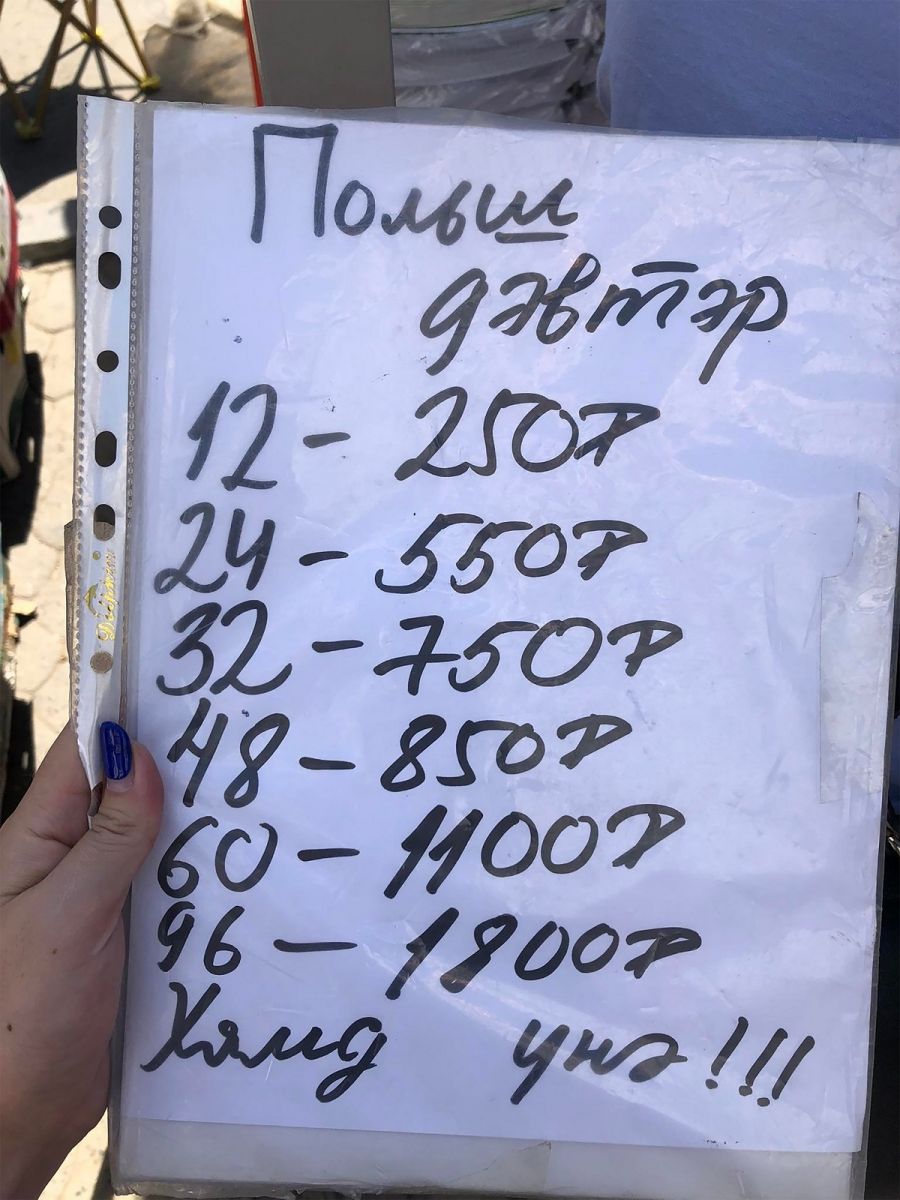 Польш
дэвтэр
12 - 250₮
24 - 550₮
32 - 750₮
48 - 850₮
60 - 1100₮
96 - 1800₮
Хямд үнэ!!!